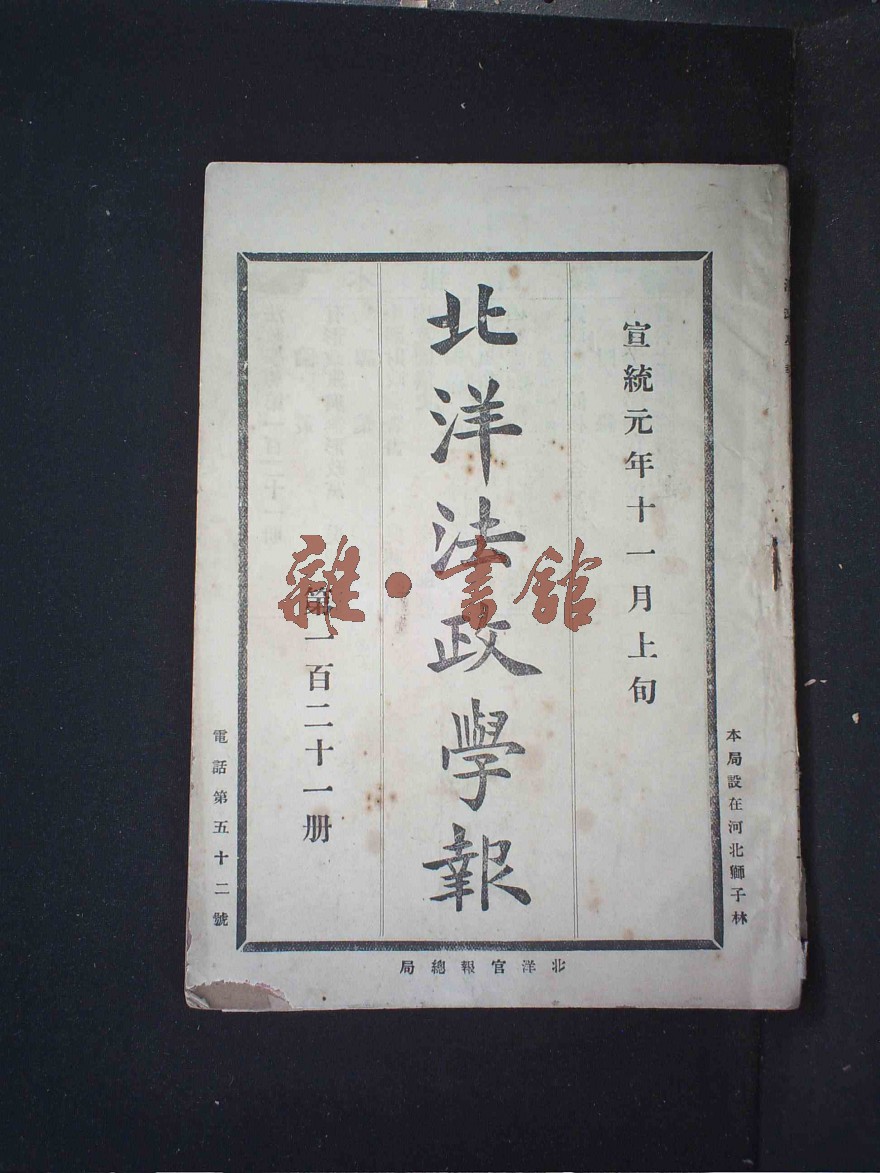 本局設在河北獅子林
宣統元年十一月上旬
北洋法政學報
第一百二十一册
電話第五十二號
北洋官報總局
雜·書館